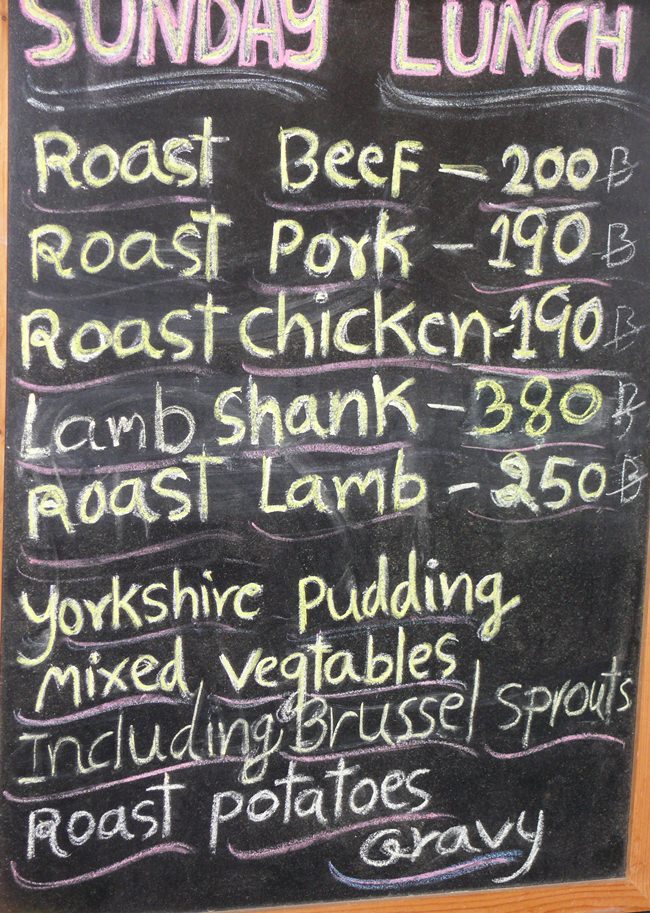 SUNDAY LUNCH
Roast Beef - 200 B
Roast Pork - 190 B
Roast chicken - 190 B
Lamb shank - 380 B
Roast Lamb - 250 B
Yorkshire Pudding
mixed vegtables
Including Brussel sprouts
Roast potatoes
Gravy